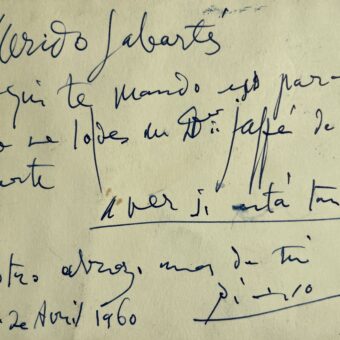 Querido Sabartés
aqui te mando eso para
o se lo des au Dor Jaffé de
arte
a ver si está tan
otro abrazo mas de tu
Picasso
de Avril 1960